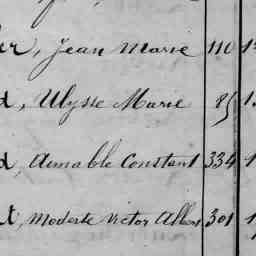 er, Jean Marie 110 1
d, Ulysse Marie 85 1
d, Aimable Constant 334 1
t, Modeste Victor Albert 301 1